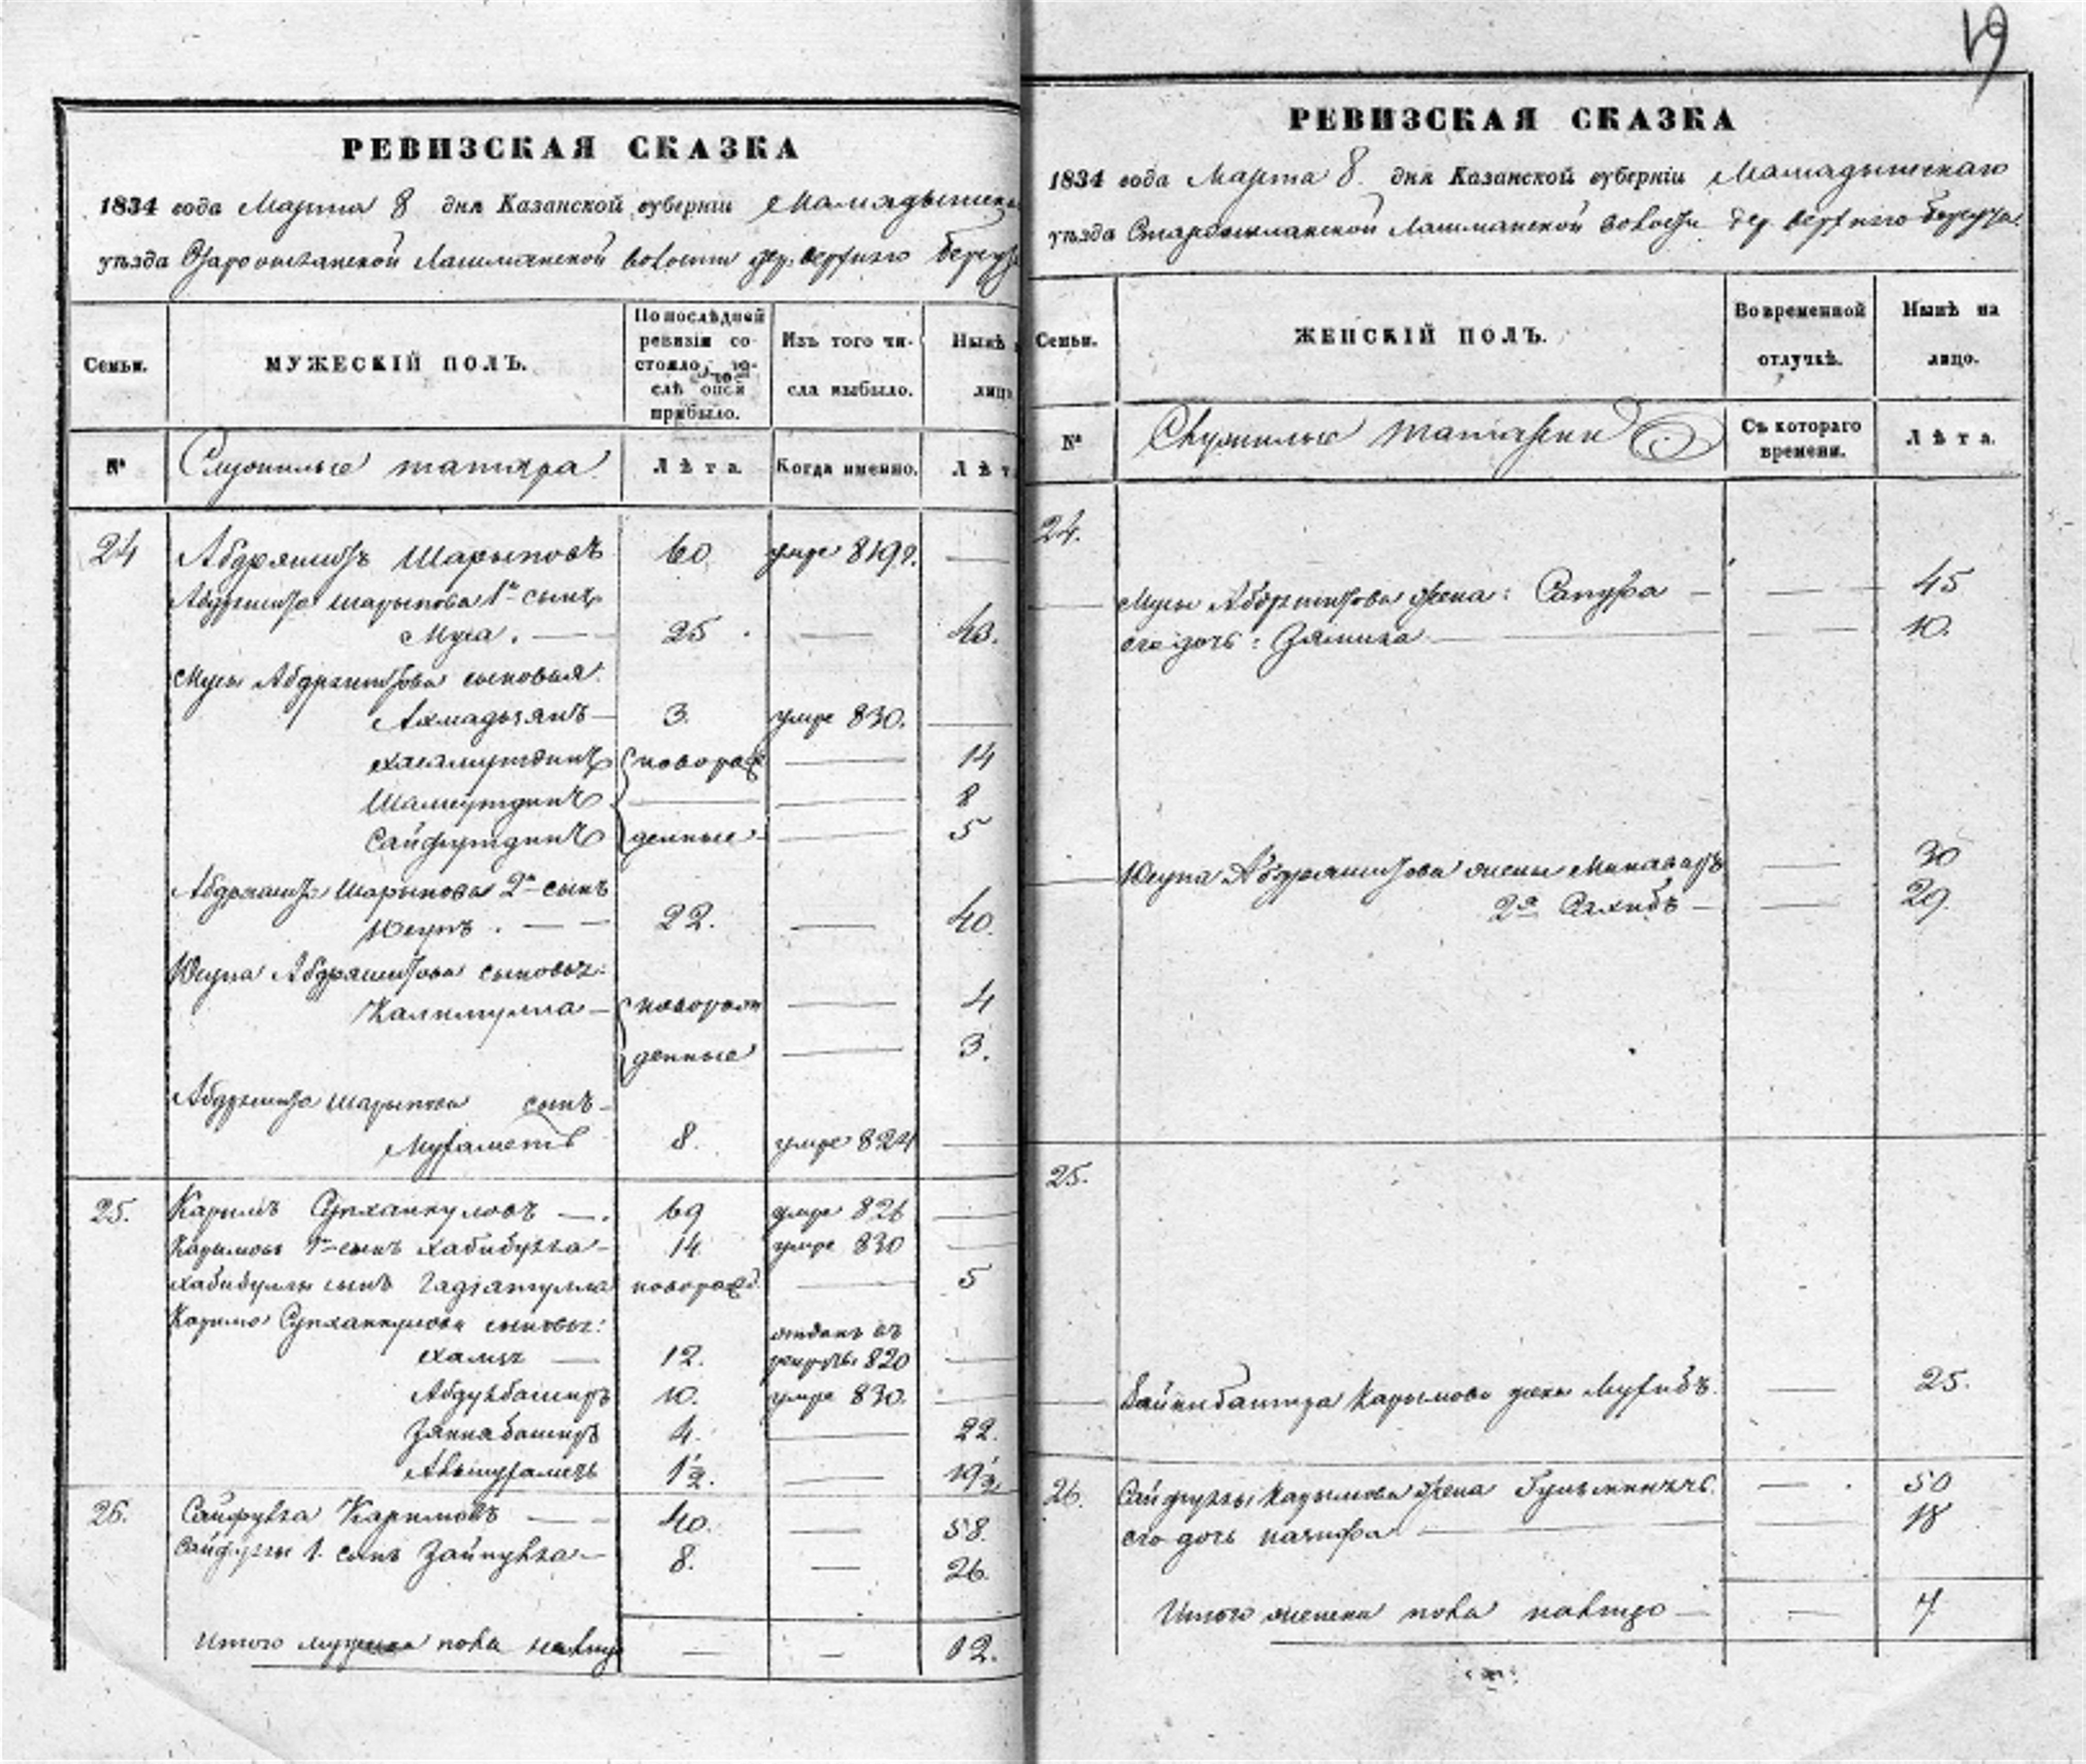 19
РЕВИЗСКАЯ СКАЗКА
1834 года Марта 8 дня Казанской губерніи Мамадышска
уѣзда Староошланской Лашманской волости дер. верхняго Берсу
Семьи.
МУЖЕСКІЙ ПОЛЪ.
По послѣдней ревизіи состояло и послѣ оной прибыло.
Изъ того числа выбыло.
Нынѣ лицо
№
Служилые татара
Лѣта.
Когда именно.
Лѣт
24 Абдряшитъ Шарыповъ 60 умре 819г. —
Абдряшита Шарыпова 1й сынъ
Муса. — 25 — 43.
Мусы Абдряшитова сыновья
Ахмадьзянъ — 3. умре 830. —
новорож — 14
Шамсутдинъ — — 8
Сайфутдинъ денные — 5
Абдряшита Шарыпова 2й сынъ
Юсупъ. — 22. — 40.
Юсупа Абдряшитова сыновья:
Калимулла — новорож — 4
денные — 3.
Абдряшита Шарыпова сынъ
Мухаметъ 8. умре 824 —
25. Карымъ Супханкуловъ — 69 умре 826 —
Карымова 1й сынъ Хабибулла — 14 умре 830 —
Хабибуллы сынъ новорожд. — 5
Карыма Супханкулова сыновья:
Хамза — 12. отданъ въ рекруты 820 —
Абдулбашыръ 10. умре 830. —
Зяинабашыръ 4. — 22.
1½. — 19½
26. Сайфулла Каримовъ — 40. — 58.
Сайфуллы 1. сынъ Зайнулла — 8. — 26.
Итого мужеска пола налицо — — 12.
РЕВИЗСКАЯ СКАЗКА
1834 года Марта 8 дня Казанской губерніи Мамадышскаго
уѣзда Староошланской Лашманской волости дер. верхняго Берсута
Семьи.
ЖЕНСКІЙ ПОЛЪ.
Во временной отлучкѣ.
Нынѣ на лицо.
№
Служилые татарки
Съ котораго времени.
Лѣта.
24.
— Мусы Абдряшитова жена: Сапура — — 45
его дочь: Зямига — — 10.
— Юсупа Абдряшитова жены — 30
2я Сахибъ — — 29.
25.
— Карымова жена — 25.
26. Сайфуллы Карымова жена — 50
его дочь — — 18
Итого женска пола налицо — — 7